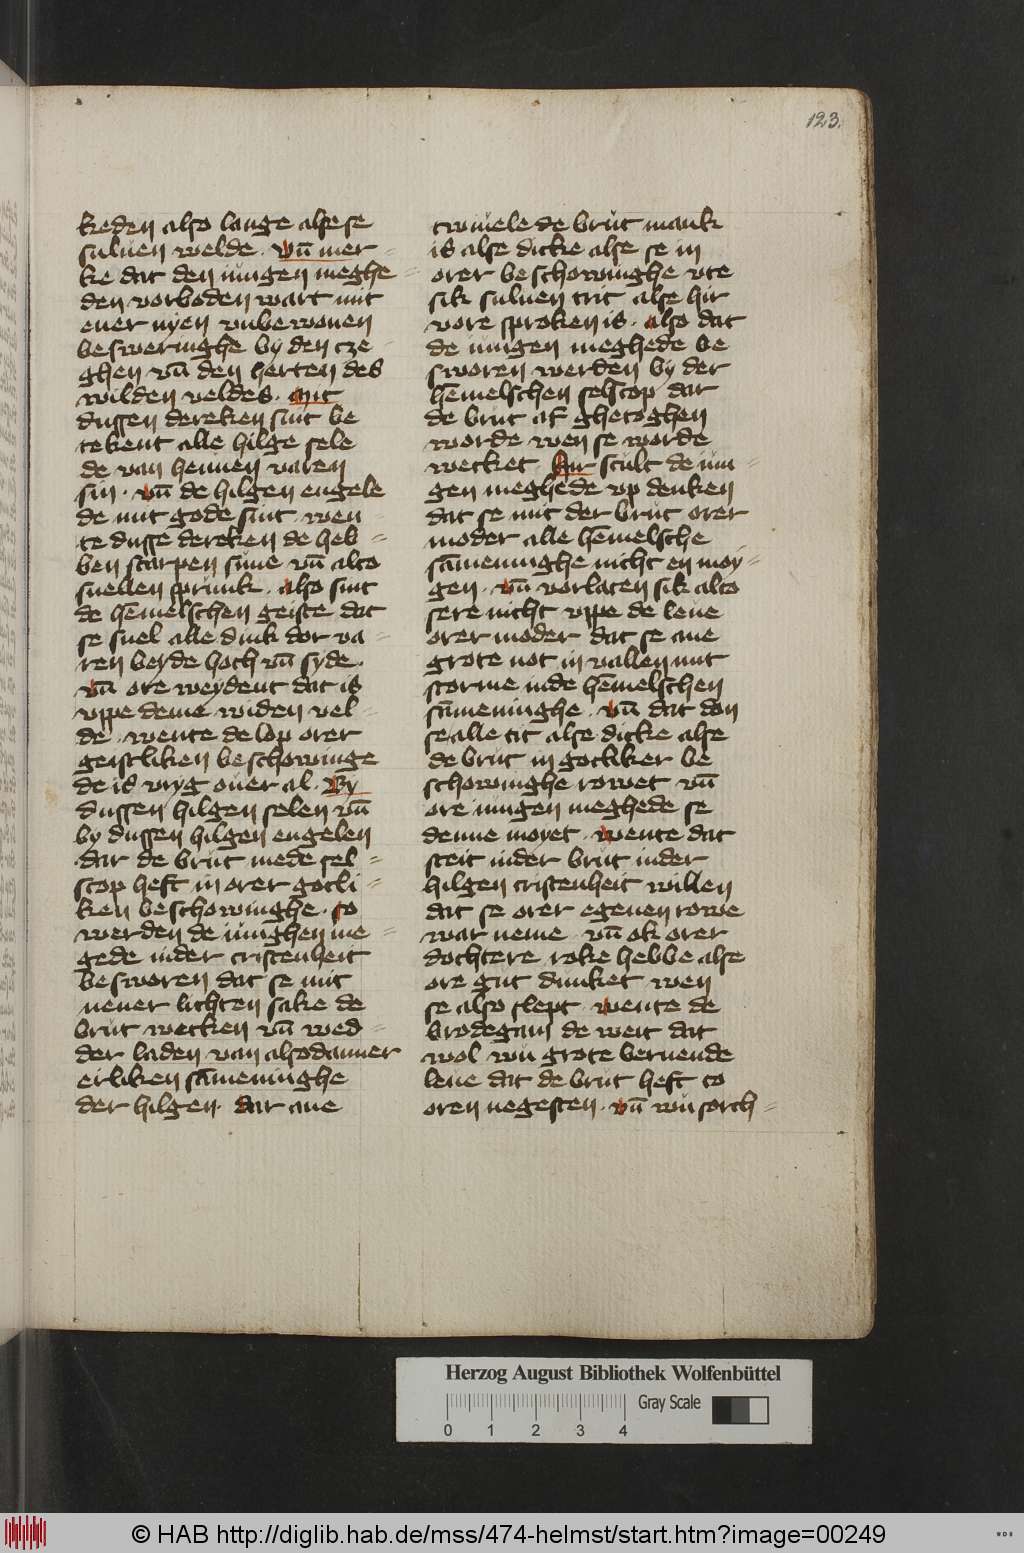 123.
keden also lange alse se
suluen welde · vn̄ mer-
ke dat den iungen meghe-
den vorboden wart mit
ener nyen vnbewonen
besweringhe by den cze-
ghen vn̄ den herten des
wilden veldes · Mit
dussen dereken sint be
tekent alle hilge sele
de van hennen varen
sin · vn̄ de hilgen engele
de mit gode sint · wen-
te dusse dereken de heb-
ben scarpen sinne vn̄ alto
snellen sprunk · also sint
de hēmelschen geiste dat
se snel alle dink dor va-
ren beyde hoch vn̄ syde ·
vn̄ ore weydent dat is
vppe deme widen vel-
de · wente de lop orer
geistliken beschowinge
de is vryg ouer al · By
dussen hilgen selen vn̄
by dussen hilgen engelen
dar de brut mede sel-
scop heft in orer gotli-
ken beschowinghe · so
werden de iunghen me-
gede in der cristenheit
besworen dat se mit
nener lichten sake de
brut wecken vn̄ wed-
der laden van alsodanner
erliken sāmeninghe
der hilgen · dar ane
twiuele de brut mank
is alse dicke alse se in
orer beschowinghe vte
sik suluen trit alse hir
vore sproken is · also dat
de iungen meghede be
sworen werden by der
hēmelschen selscop dar
de brut af ghetoghen
worde wen se worde
wecket · Hir scult de iun-
gen meghede vp denken
dat se mit der brut orer
moder alle hēmelsche
sāmeninghe nicht en moy-
gen · vn̄ vorlaten sik alto
sere nicht vppe de leue
orer moder dat se ane
grote not in vallen mit
storme in de hēmelschen
sāmeninghe · vn̄ dat don
se alle tit alse dicke alse
de brut in gotliker be
schowinghe rowet vn̄
ore iungen meghede se
denne moyet · wente dat
steit in der brut in der
hilgen cristenheit willen
dat se orer egenen rowe
war neme vn̄ ok orer
dochtere roke hebbe alse
ore gut dunket wen
se also slept · wente de
brodegam de weit dat
wol wu grote bernende
leue dat de brut heft to
oren negesten · vn̄ wu sorch-
Herzog August Bibliothek Wolfenbüttel
0 1 2 3 4 Gray Scale
© HAB http://diglib.hab.de/mss/474-helmst/start.htm?image=00249
WDB